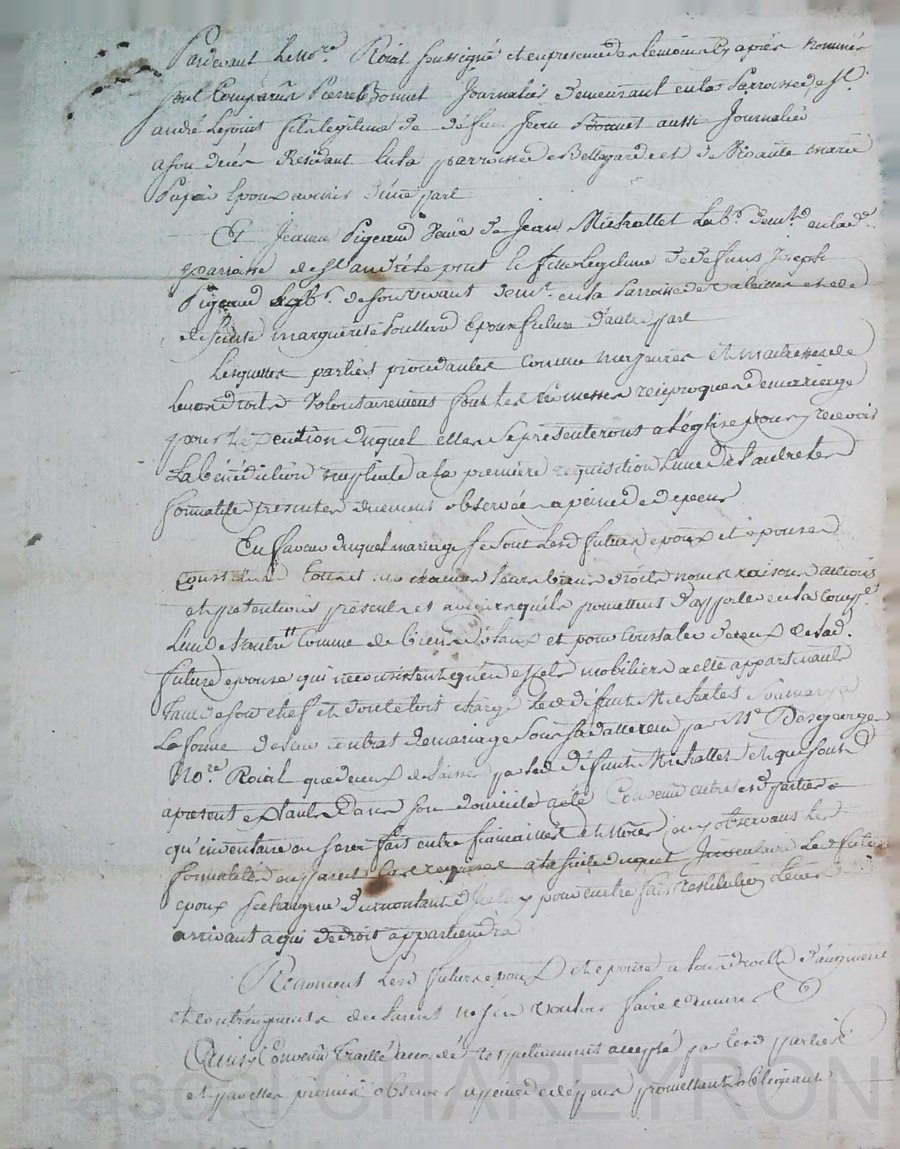 Pardevant le no.re Roial soussigné et en presence des temoins cy après nommés
sont comparus Pierre Bonnet journalié demeurant en la parroisse de S.t
andré le puit fils legitime de défunt Jean Bonnet aussi journalié
a son decés residant en la parroisse de Bellegarde et de vivante marie
Pupié Epoux avenir d'une part
Et Jeanne Pigeaud veuve de Jean Michallet lab.r dem.t en lad.
parroisse de S.t andré le puit fille legitime de defunt Joseph
Pigeaud lab.r de son vivant dem.t en la parroisse de et de
defunte marguerite Epouse future d'autre part
Lesquelles parties procedantes comme majeures et maitresses de
leurs droits volontairement font les promesses reciproques de mariage
pour l'execution duquel elles se presenteront a l'église pour y recevoir
La bénédiction nuptiale a la première requisition l'une de l'autre les
formalités prescrites duement observées a peine de depens
En faveur duquel mariage se sont lesd. futurs epoux et epouse
constitués tous et un chacun leurs biens droits noms raisons actions
et pretentions presents et avenir qu'ils promettent d'apporter en la comp.e
l'un de l'autre comme de biens et pour constater de ceux de lad.
future epouse qui ne consistent qu'en effets mobiliers a elle appartenants
tant de son chef et dont etoit chargé led. défunt Michallet
La forme de son contrat de mariage sous sa datte reçu par M.e Desgeorge
No.re Roial que de ceux délaissés par led. défunt Michallet et qui sont
apresent extants dans son domicile a été convenu entre lesd. parties
qu'inventaire en sera fait entre fiancailles et noces en y observant les
formalités en pareil cas requises a la suite duquel Inventaire led. futur
epoux se chargera du montant d'icelui pour en etre fait restitution le cas
arrivant a qui de droit appartiendra
Renoncent lesd. futurs epoux et epouse a tous droits d'augment
et contreaugment declarent n'en vouloir faire
Ainsi convenu traitté accordé respectivement accepté par lesd. parties
et promettent observer a peine de depens promettant obligeant
Pascal CHAREYRON